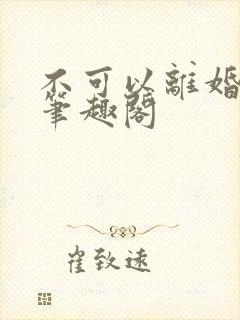 不可以離婚
筆趣閣
崔致遠